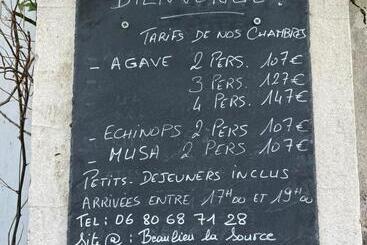 BIENVENUE !
TARIFS DE NOS CHAMBRES
- AGAVE 2 PERS. 107€
3 PERS. 127€
4 PERS. 147€
- ECHINOPS 2 PERS 107€
- MUSA 2 PERS 107€
PETITS-DEJEUNERS INCLUS
ARRIVÉES ENTRE 17H00 ET 19H00
TEL: 06 80 68 71 28
Site @ : Beaulieu la Source